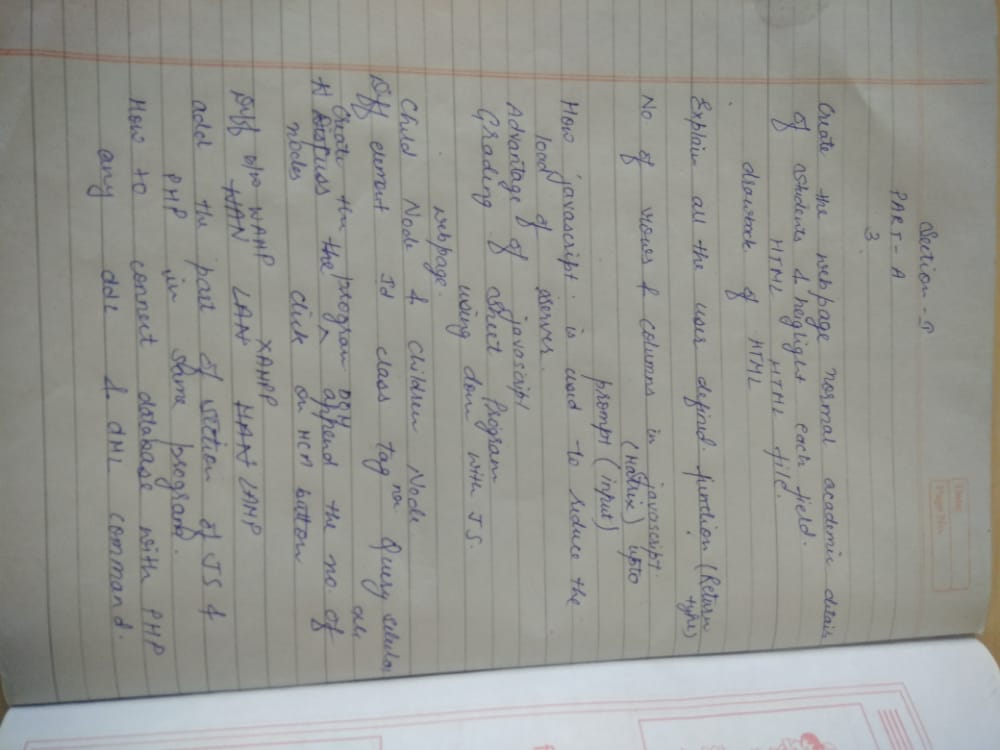 Date:
Page No.
Section - I
PART - A
3.
Create the webpage normal academic details
of students & heiglight each field.
HTML HTML file.
drawback of HTML
Explain all the user defined function (Return
type)
No of rows & columns in javascript
(Matrix) upto
prompt (input)
How javascript is used to reduce the
load of server.
Advantage of javascript
Grading Sheet Program
using dom with JS.
webpage.
Child Node & Children Node
Diff element Id class tag Query selector
all
Create the program DOM
Discuss the append the no. of
nodes click on button
Diff b/w WAMP XAMPP
WAN LAN MAN LAMP
add the part of section of JS &
PHP in same program.
How to connect database with PHP
any ddl & dML command.